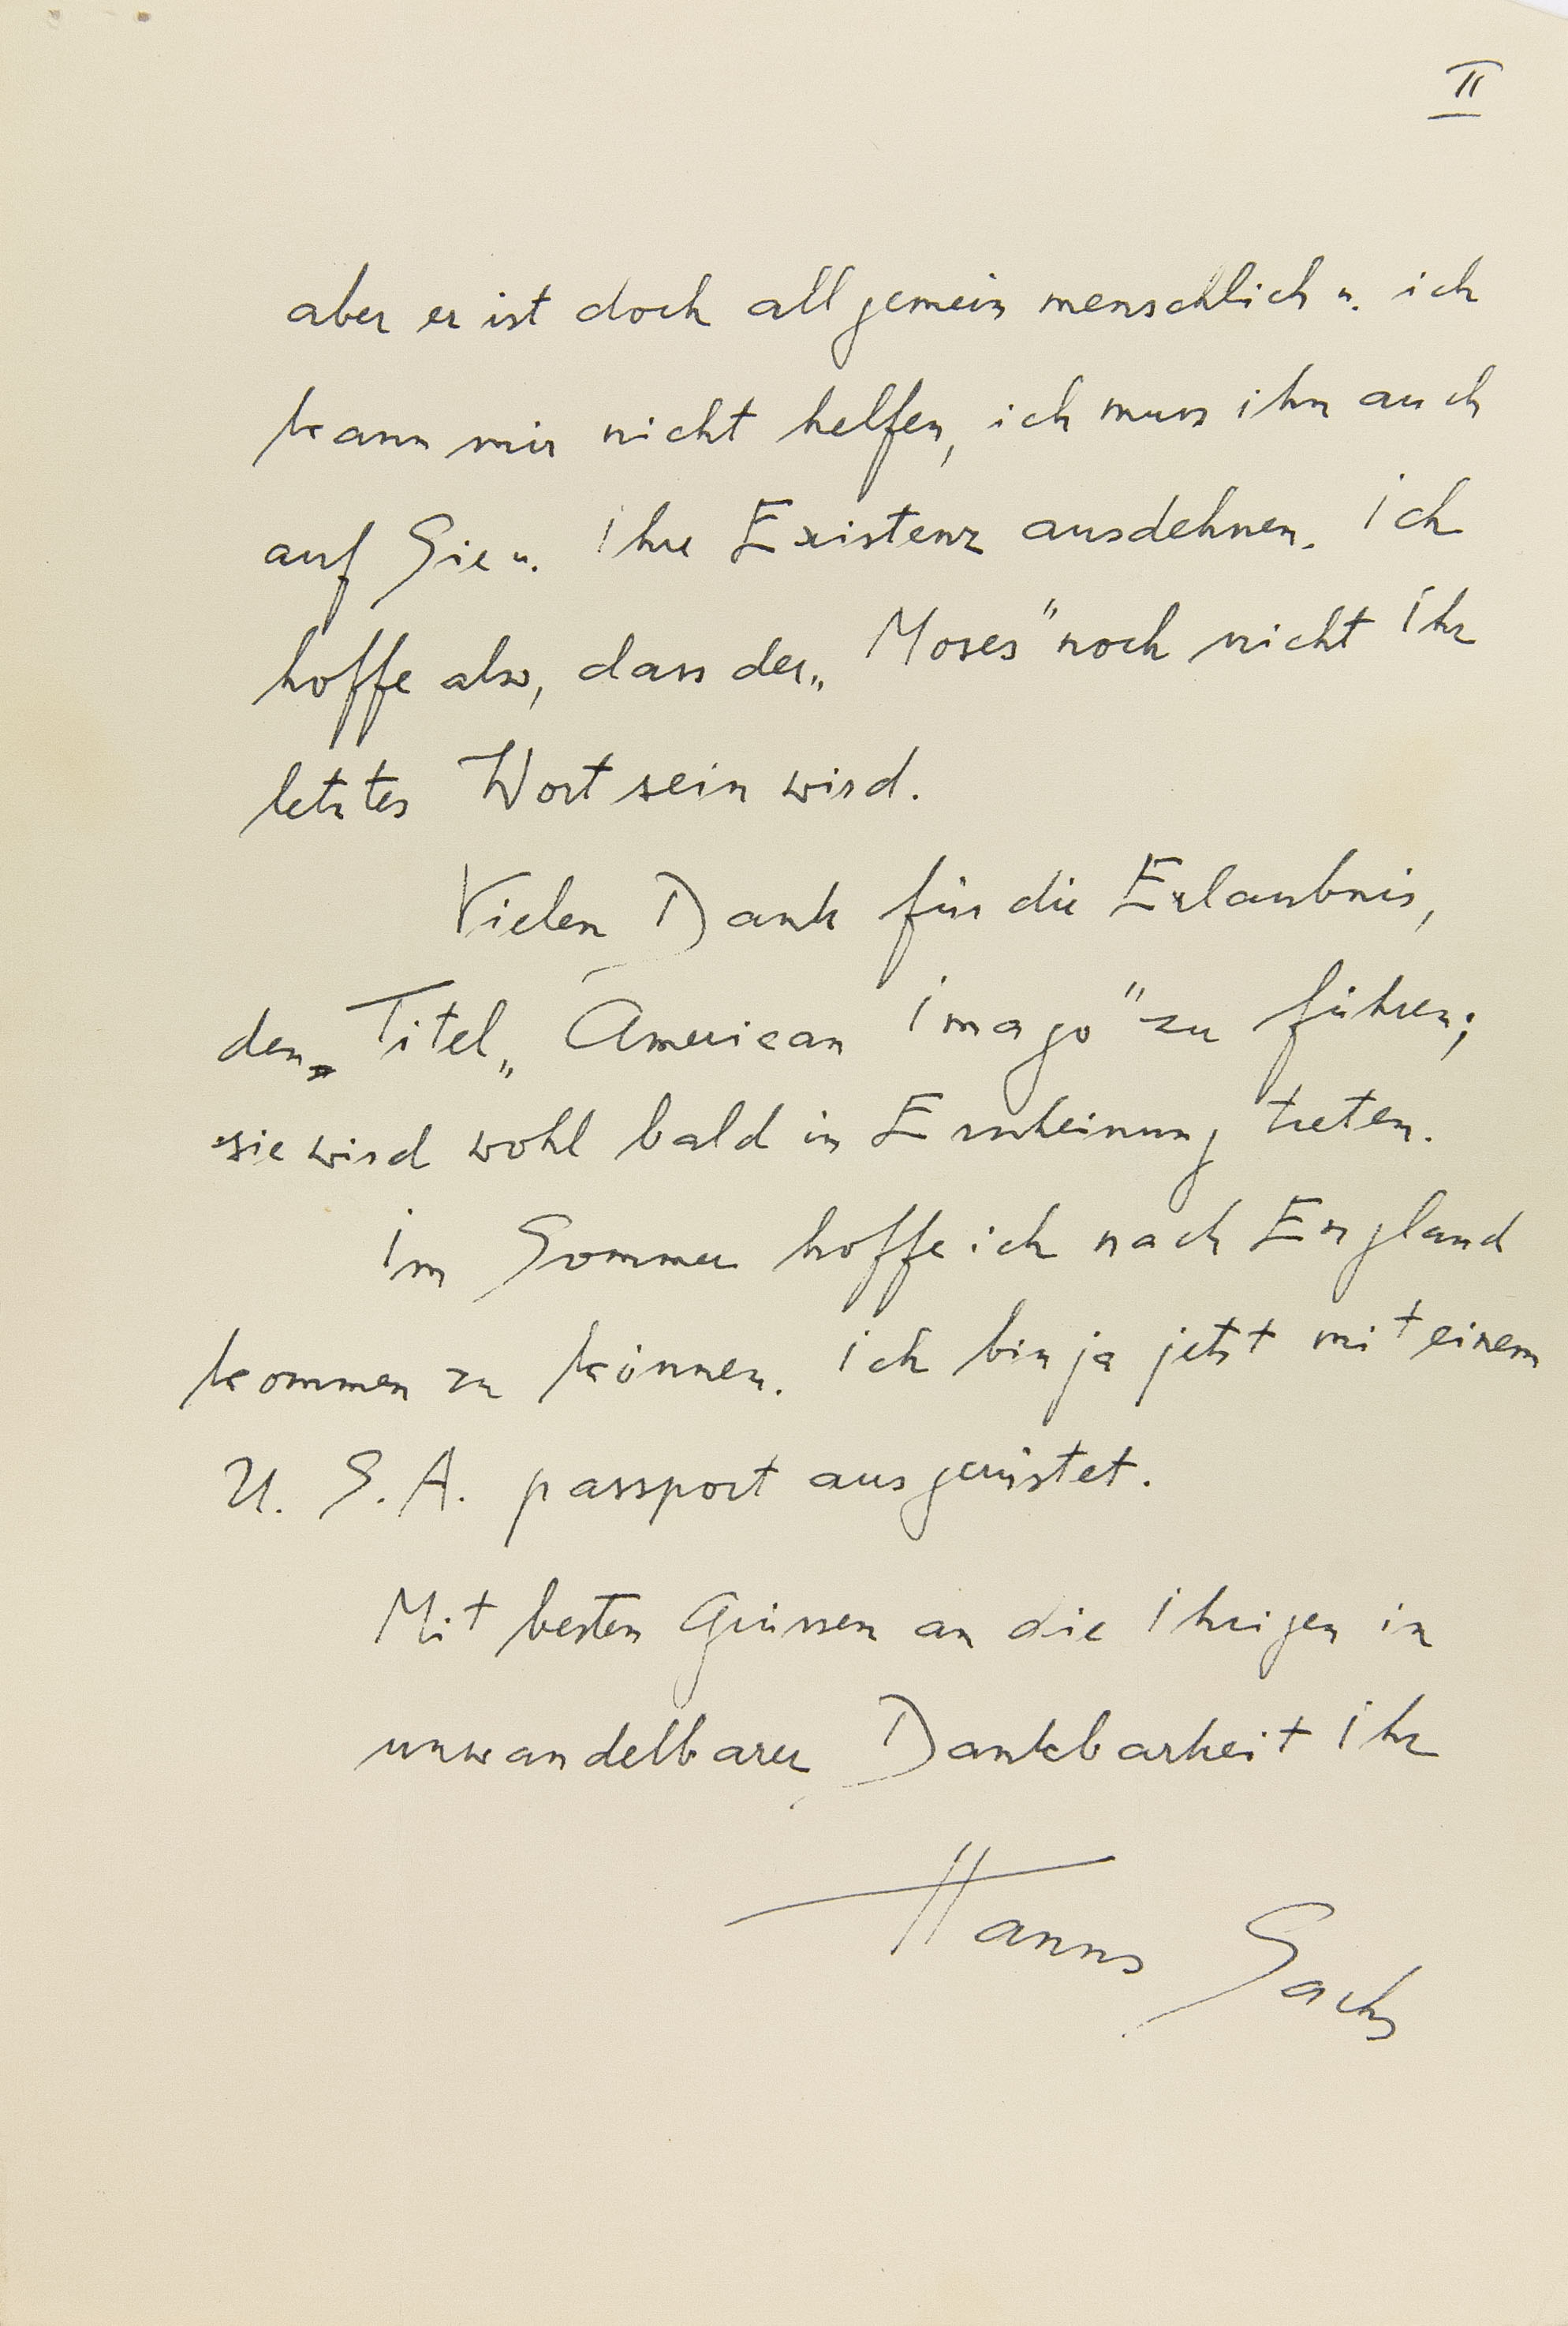 II
aber er ist doch allgemein menschlich u. ich
kann mir nicht helfen, ich muss ihn auch
auf Sie u. Ihre Existenz ausdehnen. Ich
hoffe also, dass der „Moses" noch nicht Ihr
letztes Wort sein wird.
Vielen Dank für die Erlaubnis,
den Titel „American Imago" zu führen;
sie wird wohl bald in Erscheinung treten.
Im Sommer hoffe ich nach England
kommen zu können. Ich bin ja jetzt mit einem
U. S. A. passport ausgerüstet.
Mit besten Grüssen an die Ihrigen in
unwandelbarer Dankbarkeit Ihr
Hanns Sachs